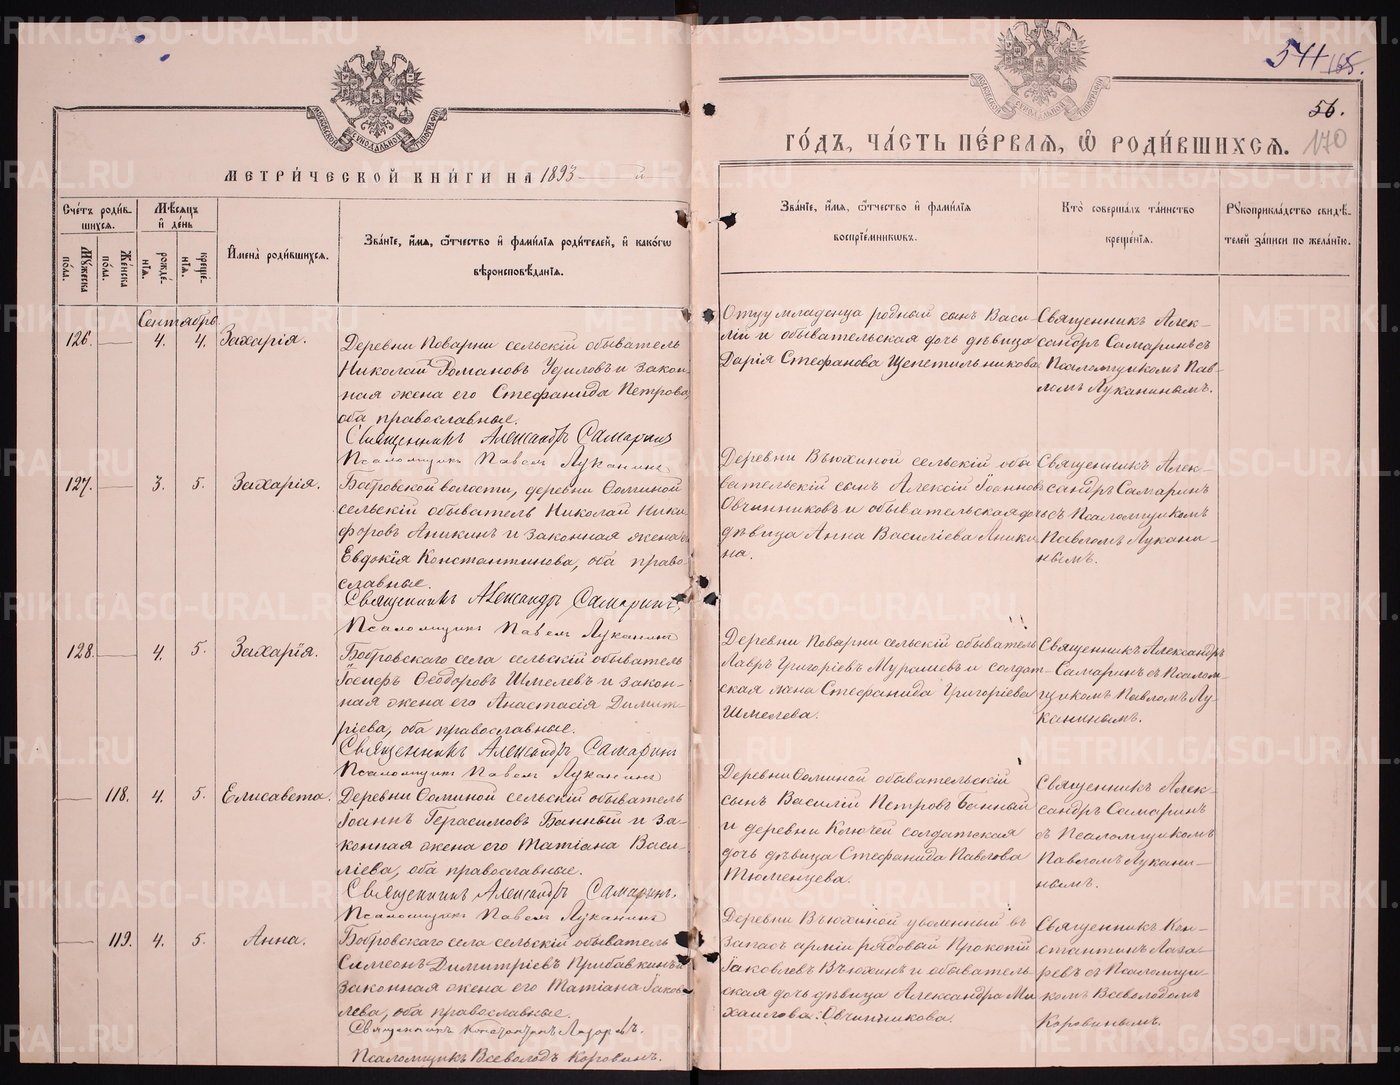 541 168.
56.
170
МЕТРИ́ЧЕСКОЙ КНИ́ГИ НА 1893 й
ГО́ДЪ, ЧА́СТЬ ПЕ́РВАѦ, Ѡ҆ РОДИ́ВШИХСѦ.
Сче́тъ роди́в-
шихся.
Мѣ́сяцъ
и҆ де́нь
Мꙋ́жеска
по́ла.
Же́нска
по́ла.
рожде́-
нїѧ.
креще́-
нїѧ.
И҆мена̀ роди́вшихся.
Зва́нїе, и҆́мѧ, ѻ҆́тчество и҆ фами́лїѧ роди́телей, и҆ како́гѡ
вѣроисповѣ́данїѧ.
Зва́нїе, и҆́мѧ, ѻ҆́тчество и҆ фами́лїѧ
воспрїе́мникѡвъ.
Кто̀ соверша́лъ та́инство
креще́нїѧ.
Рꙋкоприкла́дство свидѣ́-
телей за́писи по жела́нїю.
Сентябрь
126. — 4. 4. Захарія.
Деревни Поварни сельскій обыватель
Николай Романовъ Удиловъ и закон-
ная жена его Стефанида Петрова,
оба православные.
Священникъ Александръ Самаринъ
Псаломщикъ Павелъ Луканинъ
Отцу младенца родный сынъ Васи-
лій и обывательская дочь дѣвица
Дарія Стефанова Щепетильникова
Священникъ Алек-
сандръ Самаринъ съ
Псаломщикомъ Пав-
ломъ Луканинымъ.
127. — 3. 5. Захарія.
Бобровской волости, деревни Ѳоминой
сельскій обыватель Николай Ники-
форовъ Аникинъ и законная жена его
Евдокія Константинова, оба право-
славные.
Священникъ Александръ Самаринъ,
Псаломщикъ Павелъ Луканинъ
Деревни Вьюхиной сельскій обы-
вательскій сынъ Алексій Іоанновъ
Овчинниковъ и обывательская дочь
дѣвица Анна Василіева Аники-
на.
Священникъ Алек-
сандръ Самаринъ
съ Псаломщикомъ
Павломъ Лукани-
нымъ.
128. — 4. 5. Захарія.
Бобровскаго села сельскій обыватель
Іосифъ Ѳеодоровъ Шмелевъ и закон-
ная жена его Анастасія Димит-
ріева, оба православные.
Священникъ Александръ Самаринъ
Псаломщикъ Павелъ Луканинъ
Деревни Поварни сельскій обыватель
Лавръ Григоріевъ Мурашевъ и солдат-
ская жена Стефанида Григоріева
Шмелева.
Священникъ Александръ
Самаринъ съ Псалом-
щикомъ Павломъ Лу-
канинымъ.
— 118. 4. 5. Елисавета.
Деревни Ѳоминой сельскій обыватель
Іоаннъ Герасимовъ Банный и за-
конная жена его Татіана Васи-
ліева, оба православные.
Священникъ Александръ Самаринъ.
Псаломщикъ Павелъ Луканинъ
Деревни Ѳоминой обывательскій
сынъ Василій Петровъ Банный
и деревни Ключей солдатская
дочь дѣвица Стефанида Павлова
Тюменцева.
Священникъ Алек-
сандръ Самаринъ
съ Псаломщикомъ
Павломъ Лукани-
нымъ.
— 119. 4. 5. Анна.
Бобровскаго села сельскій обыватель
Симеонъ Димитріевъ Прибавкинъ и
законная жена его Татіана Іаков-
лева, оба православные.
Священникъ Константинъ Лазаревъ.
Псаломщикъ Всеволодъ Коровинъ.
Деревни Вьюхиной уволенный въ
запасъ арміи рядовый Прокопій
Іаковлевъ Вьюхинъ и обыватель-
ская дочь дѣвица Александра Ми-
хаилова Овчинникова.
Священникъ Кон-
стантинъ Лаза-
ревъ съ Псаломщи-
комъ Всеволодомъ
Коровинымъ.
METRIKI.GASO-URAL.RU